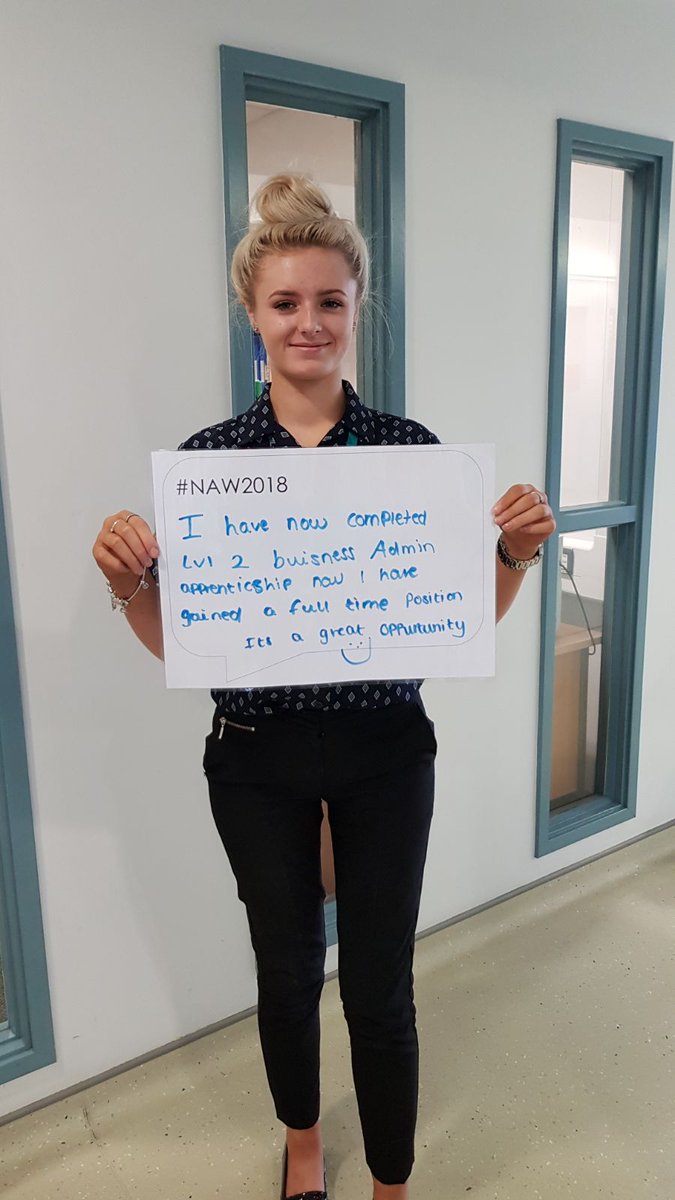 #NAW2018
I have now completed
Lvl 2 buisness Admin
apprenticship now I have
gained a full time position
Its a great oppurtunity